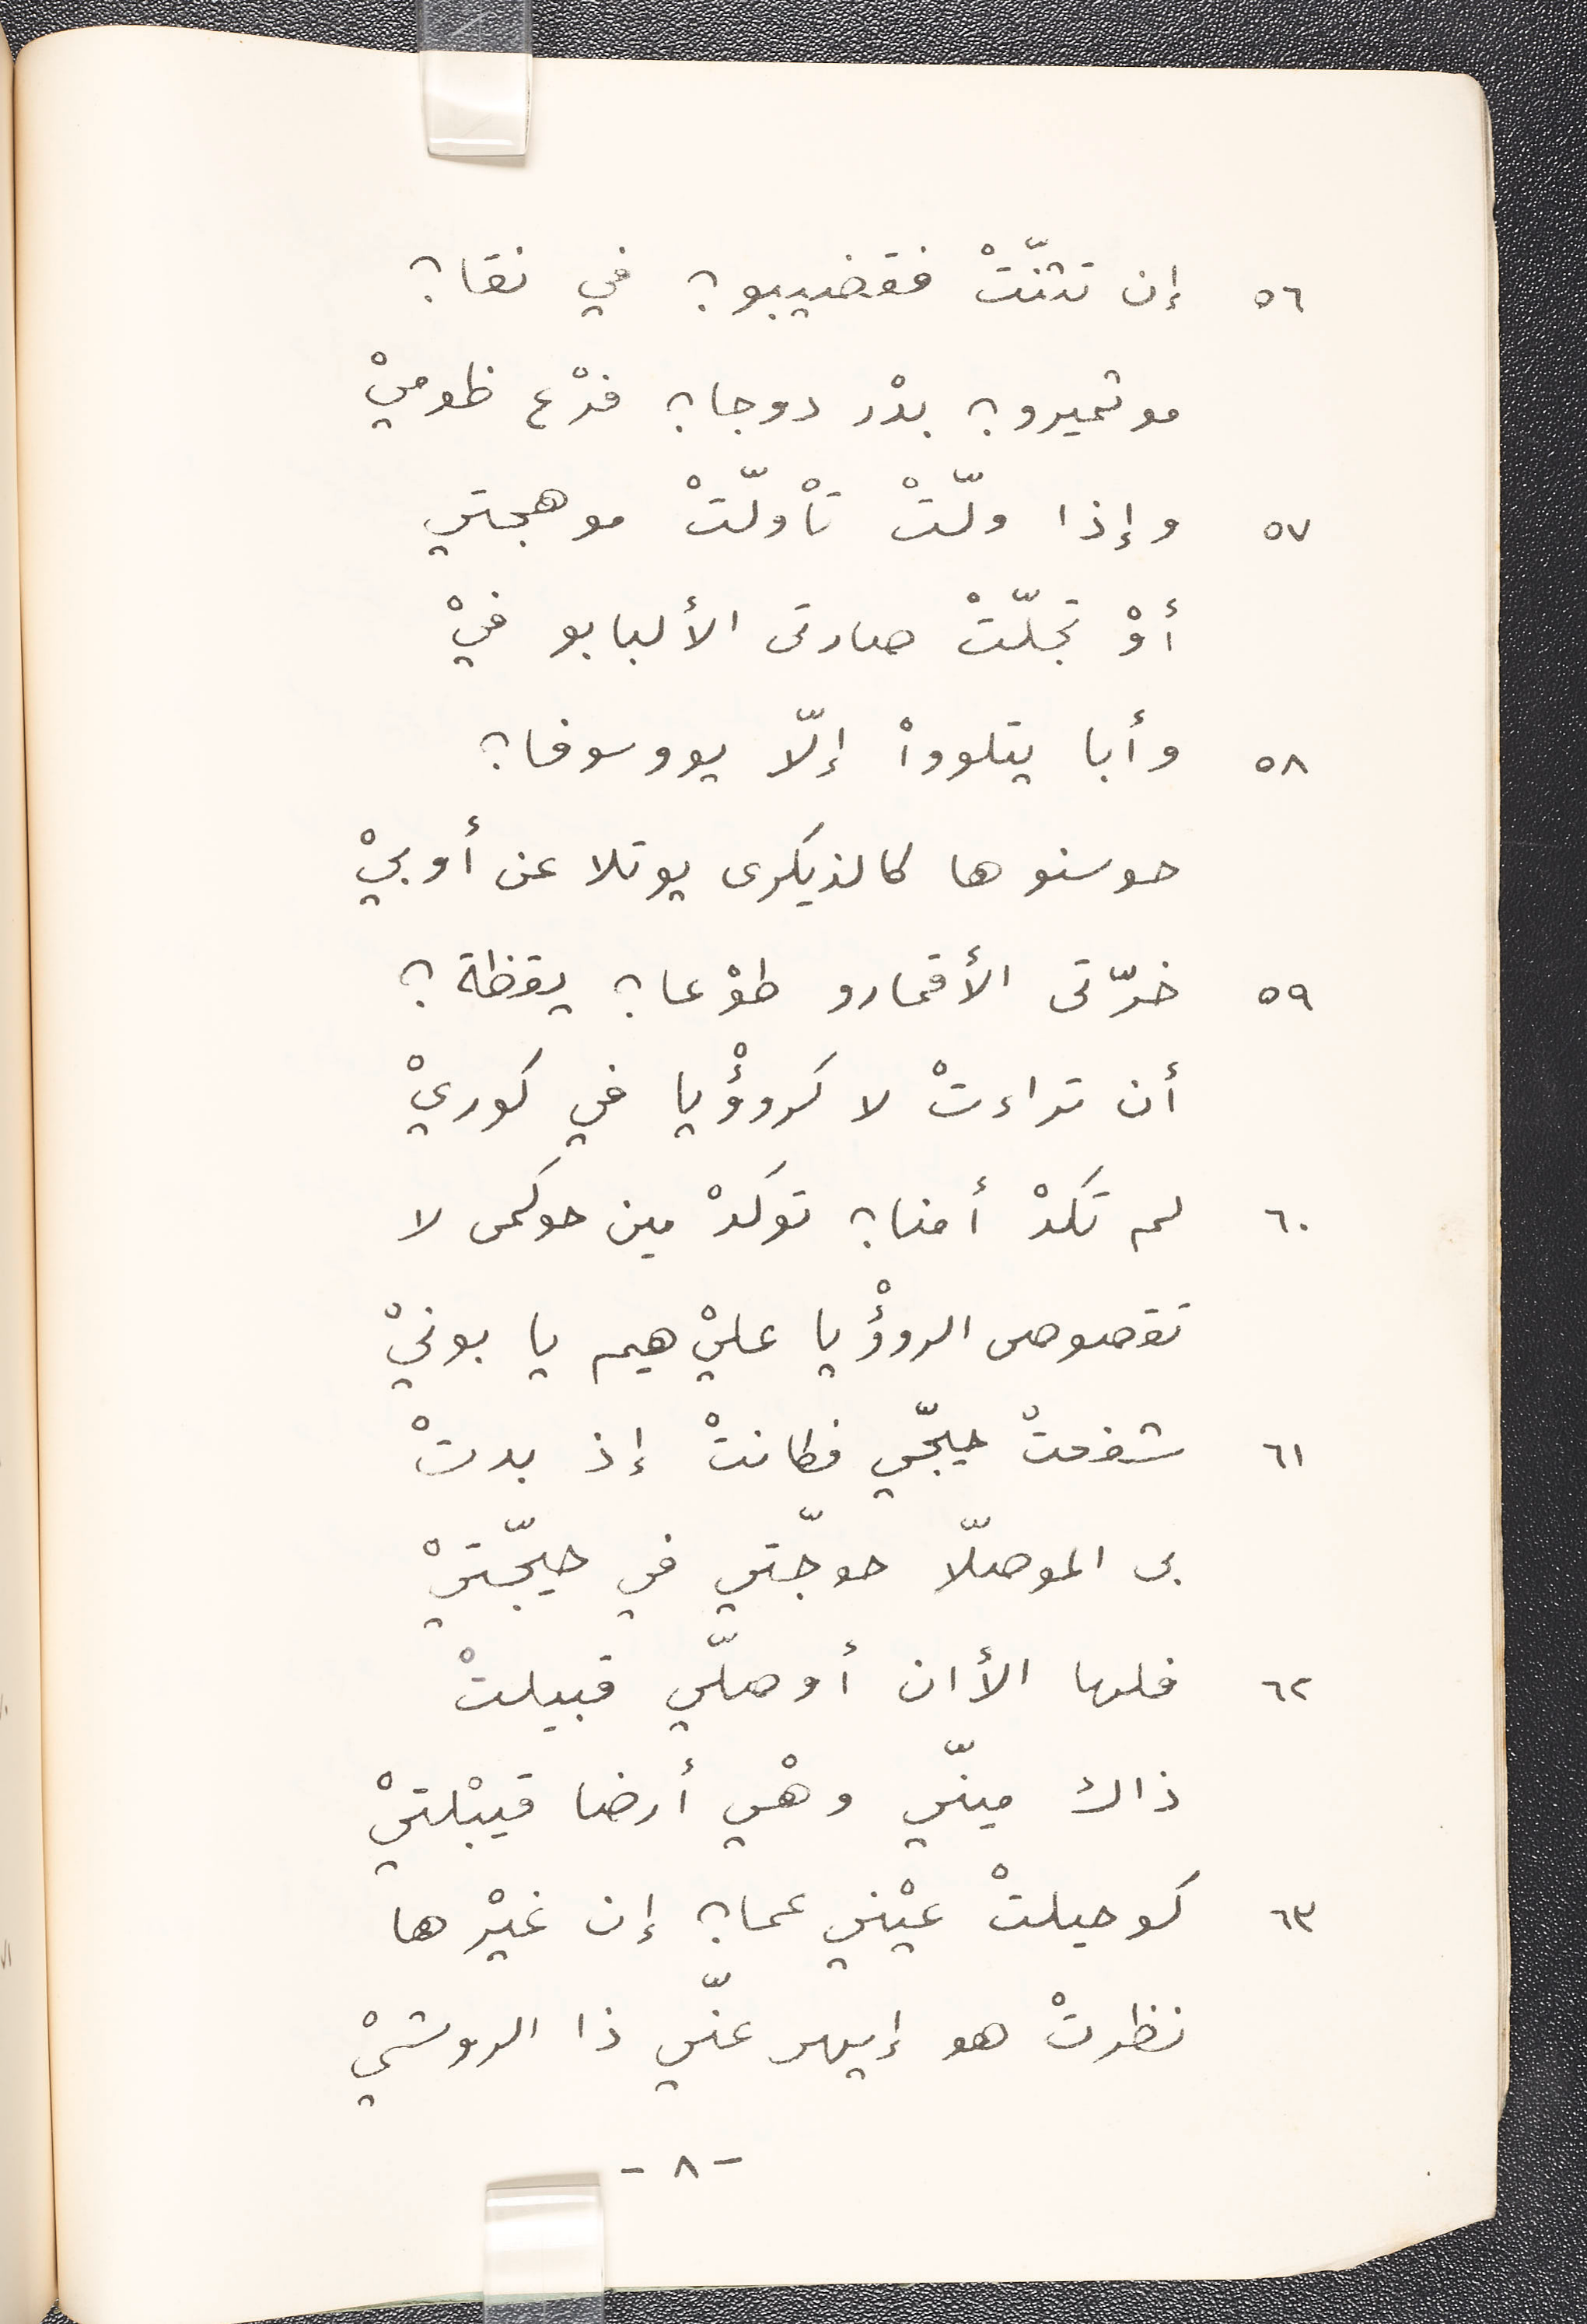 ٥٦ إن تثنّتْ فقضيبو؟ في نقا؟
موتميرو؟ بدْر دوجا؟ فرْع ظوميْ
٥٧ وإذا ولّتْ تأْولّتْ موهجتي
أوْ تجلّتْ صارتى الألبابو فيْ
٥٨ وأبا يتلوواْ إلّا يووسوفا؟
حوسنوها كالذيكرى يوتلا عن أوبيْ
٥٩ خرّتى الأقمارو طوْعا؟ يقظة؟
أن تراءتْ لا كروؤْيا في كوريْ
٦٠ لم تكدْ أمنا؟ توكدْ مين حوكمى لا
تقصوصى الروؤْيا عليْهيم يا بونيْ
٦١ شفعتْ حيجّي فكانتْ إذ بدتْ
بى الموصلّا حوجّتي في حيجّتيْ
٦٢ فلها الأان أوصلّي قبيلتْ
ذاك مينّي وهْي أرضا قيبْلتيْ
٦٣ كوحيلتْ عيْني عما؟ إن غيْرها
نظرتْ هو إيهى عنّي ذا الروشيْ
-٨-